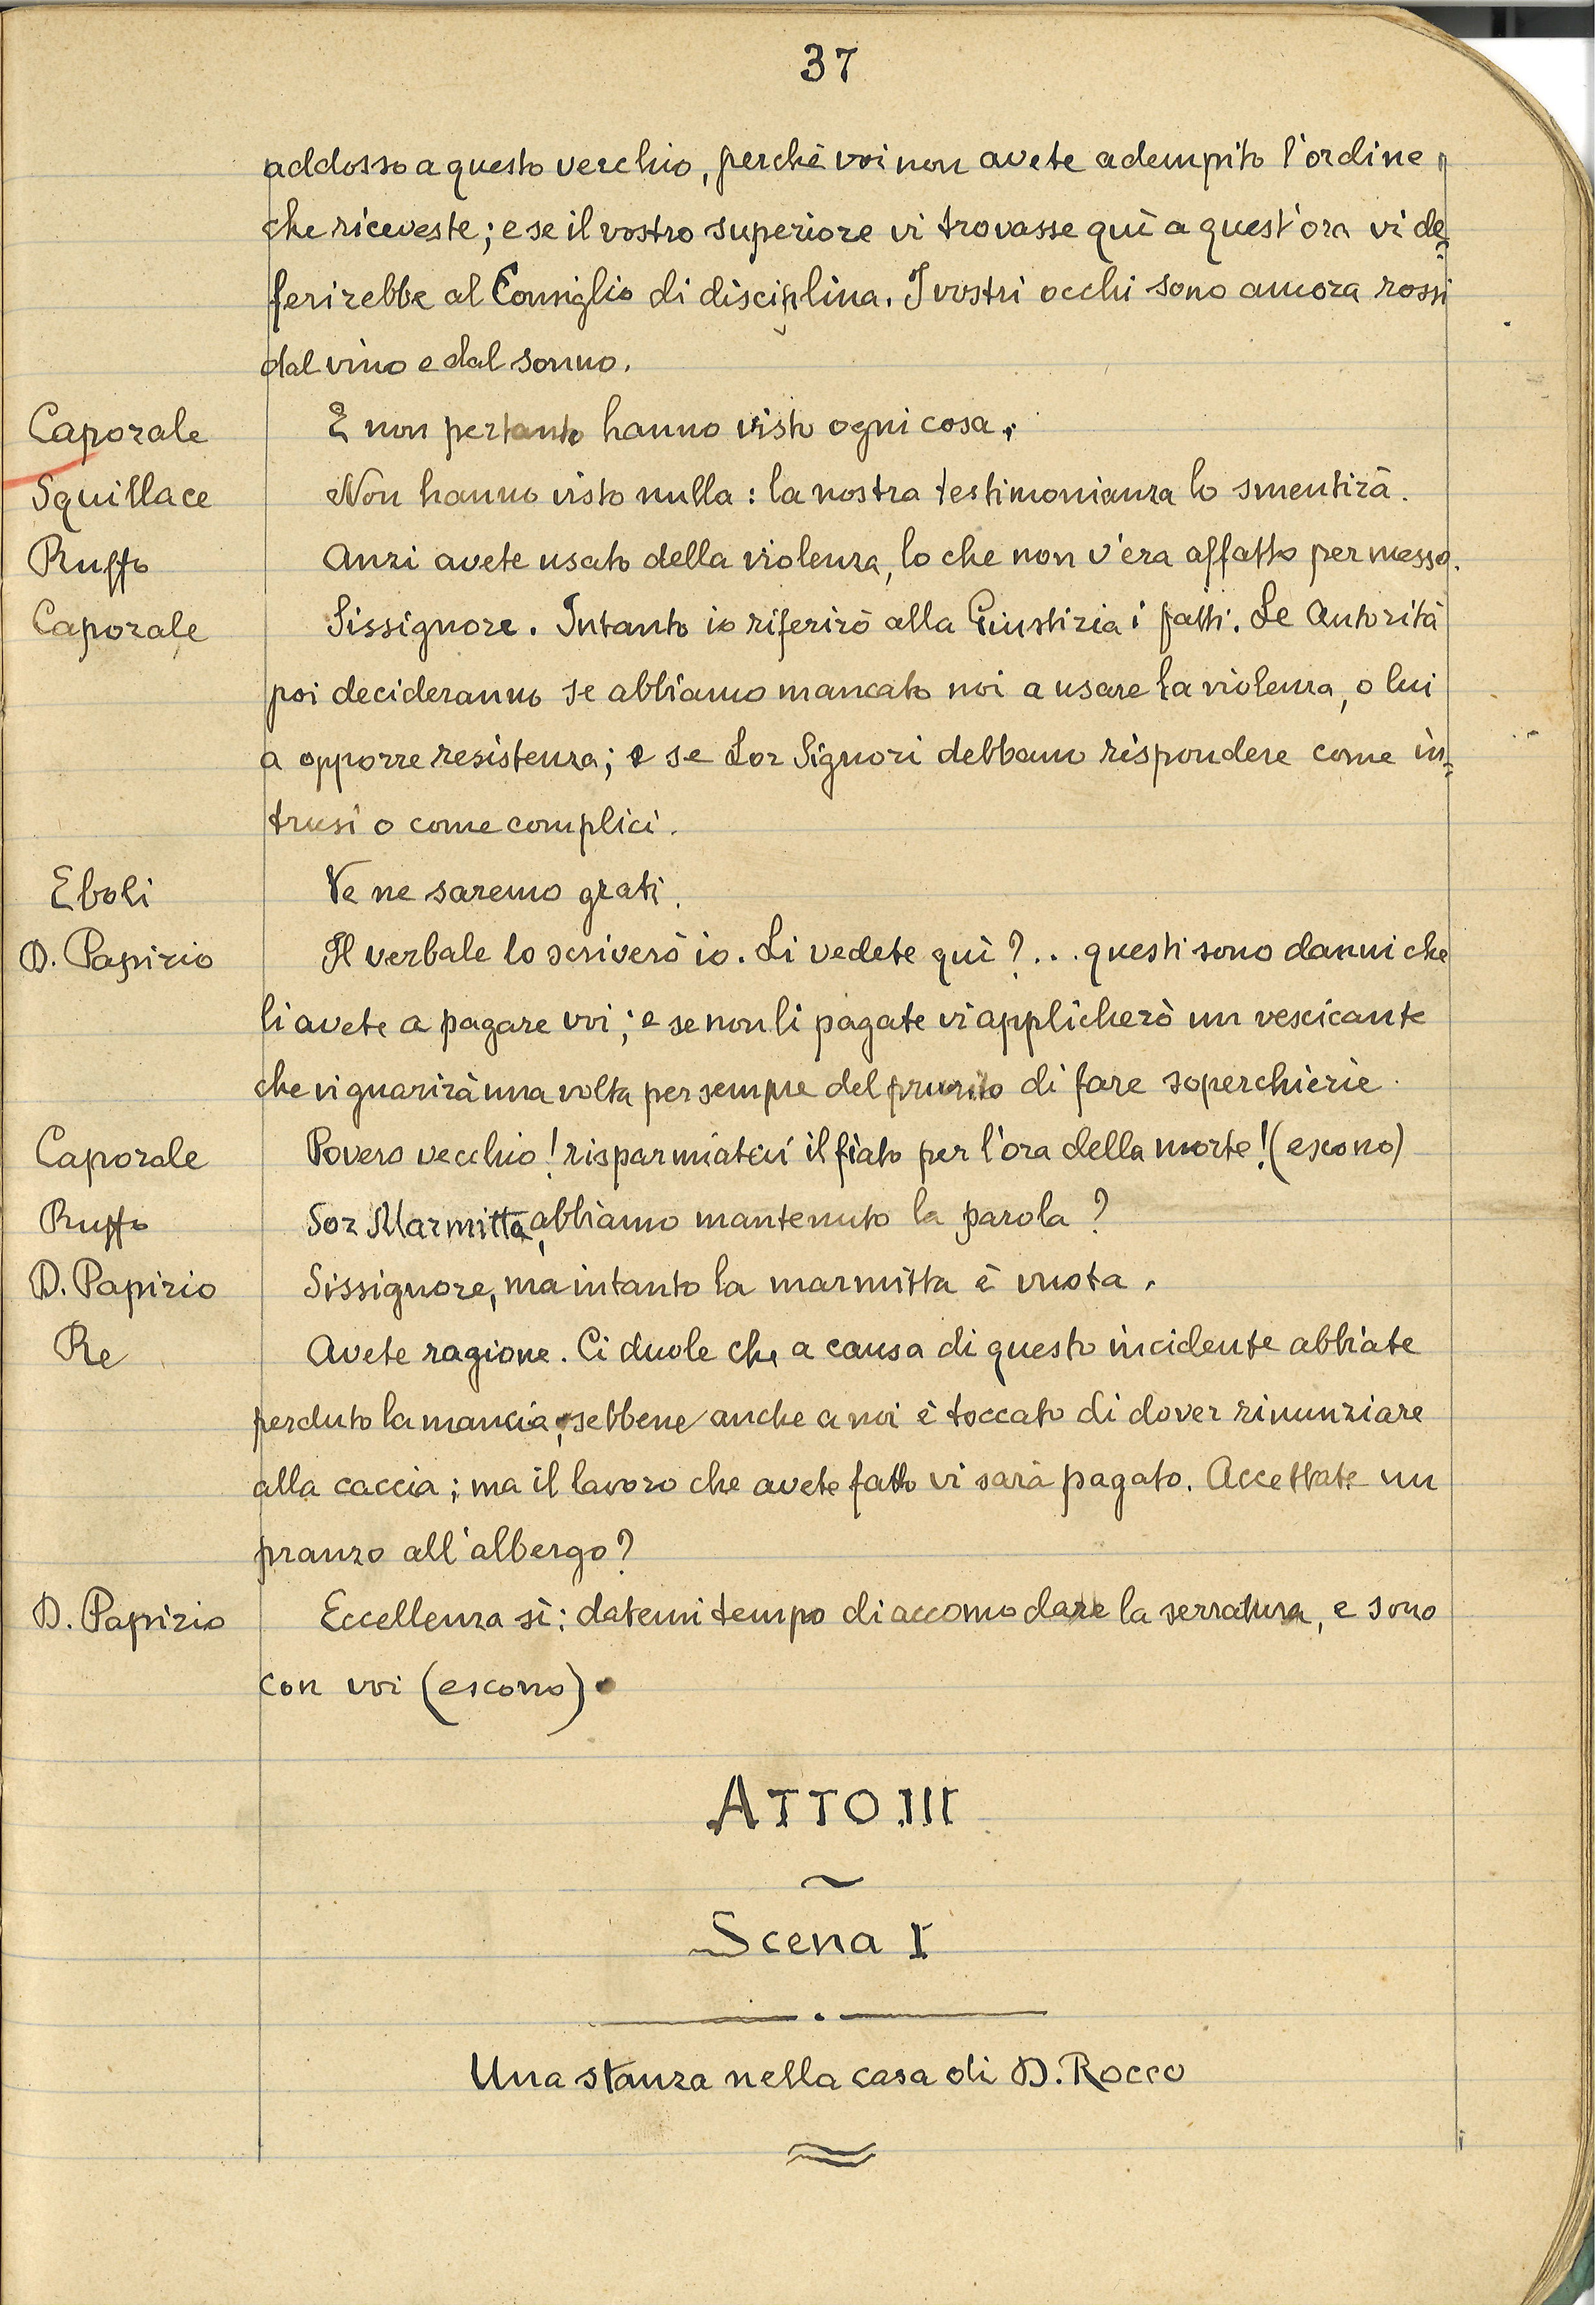 37
addosso a questo vecchio, perchè voi non avete adempito l'ordine
che riceveste; e se il vostro superiore vi trovasse quì a quest'ora vi de=
ferirebbe al Consiglio di disciplina. I vostri occhi sono ancora rossi
dal vino e dal sonno.
Caporale E non pertanto hanno visto ogni cosa.
Squillace Non hanno visto nulla: la nostra testimonianza lo smentirà.
Ruffo Anzi avete usato della violenza, lo che non v'era affatto permesso.
Caporale Sissignore. Intanto io riferirò alla Giustizia i fatti. Le Autorità
poi decideranno se abbiamo mancato noi a usare la violenza, o lui
a opporre resistenza; e se Lor Signori debbano rispondere come in=
trusi o come complici.
Eboli Ve ne saremo grati.
D. Papirio Il verbale lo scriverò io. Li vedete quì?... questi sono danni che
li avete a pagare voi; e se non li pagate vi applicherò un vescicante
che vi guarirà una volta per sempre del prurito di fare soperchierie.
Caporale Povero vecchio! risparmiatevi il fiato per l'ora della morte! (escono)
Ruffo Sor Marmitta, abbiamo mantenuto la parola?
D. Papirio Sissignore, ma intanto la marmitta è vuota.
Re Avete ragione. Ci duole che a causa di questo incidente abbiate
perduto la mancia, sebbene anche a noi è toccato di dover rinunziare
alla caccia; ma il lavoro che avete fatto vi sarà pagato. Accettate un
pranzo all'albergo?
D. Papirio Eccellenza sì: datemi tempo di accomodare la serratura, e sono
con voi (escono).
ATTO III
Scena I
Una stanza nella casa di D. Rocco